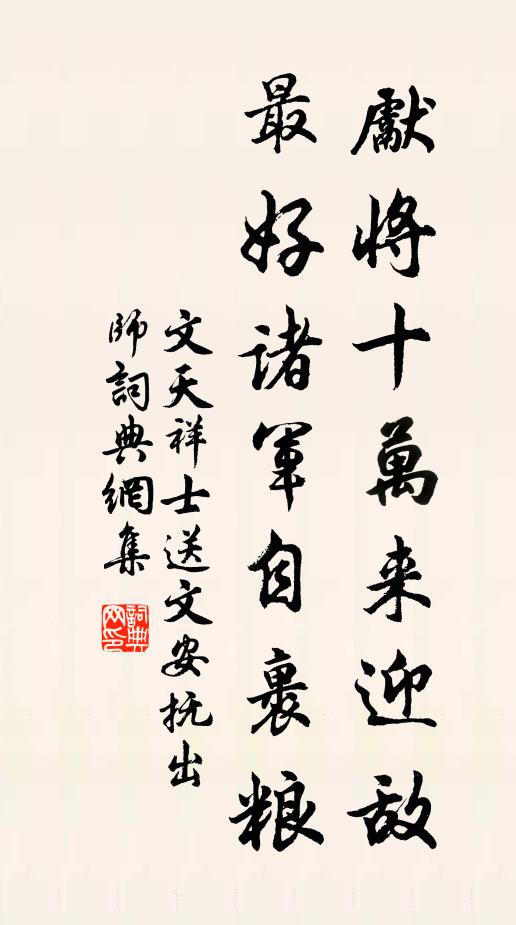 獻將十萬来迎敌
最好诸軍自裹粮
文天祥士送文安抚出
師詞典網集
詞典
网印